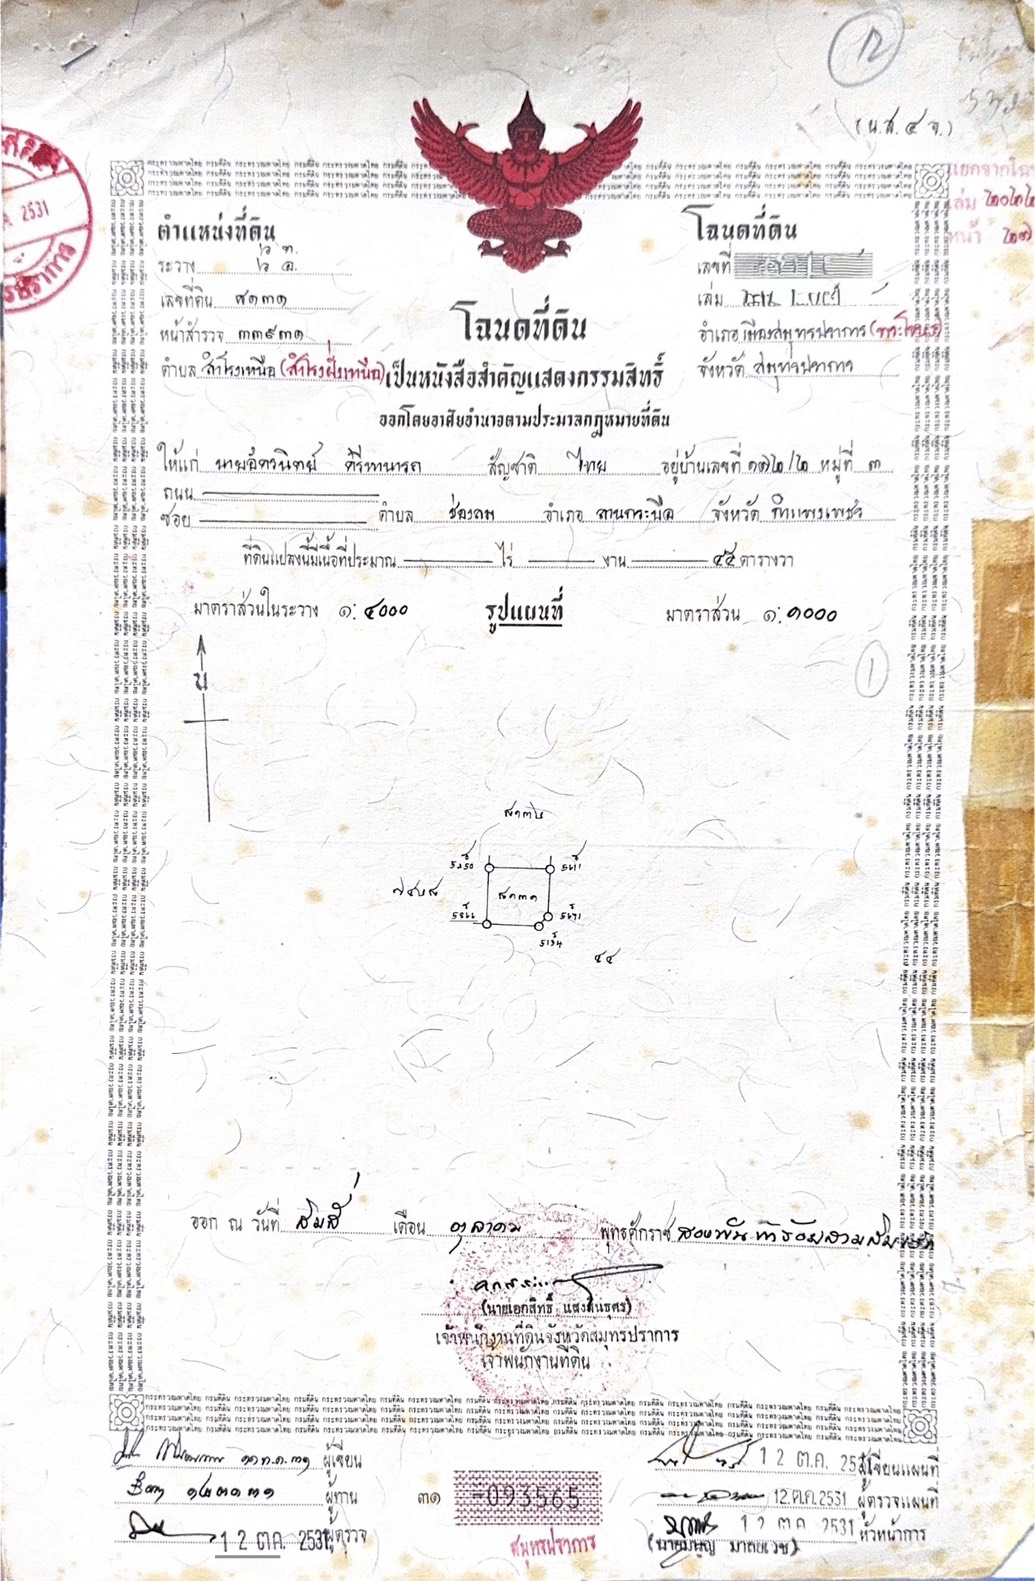 ๑๒
(น.ส.๔ จ.)
2531
แยกจากโฉนด
เล่ม
หน้า
ตำแหน่งที่ดิน
โฉนดที่ดิน
ระวาง
เลขที่
เลขที่ดิน ๕๑๓๑
เล่ม
หน้าสำรวจ ๓๓๙๓๑
อำเภอ เมืองสมุทรปราการ (พระโขนง)
ตำบล สำโรงเหนือ (สำโรงฝั่งเหนือ)
จังหวัด สมุทรปราการ
โฉนดที่ดิน
เป็นหนังสือสำคัญแสดงกรรมสิทธิ์
ออกโดยอาศัยอำนาจตามประมวลกฎหมายที่ดิน
ให้แก่ สัญชาติ ไทย อยู่บ้านเลขที่ ๑๗๒/๒ หมู่ที่ ๓
ถนน
ซอย ตำบล ช่องลม อำเภอ ลานกระบือ จังหวัด กำแพงเพชร
ที่ดินแปลงนี้มีเนื้อที่ประมาณ ไร่ งาน ๔๕ ตารางวา
มาตราส่วนในระวาง ๑:๔๐๐๐ รูปแผนที่ มาตราส่วน ๑:๑๐๐๐
น
1
๕๑๓๑
๔๔
ออก ณ วันที่ สิบสี่ เดือน ตุลาคม พุทธศักราช สองพันห้าร้อยสามสิบเอ็ด
(นายเอกสิทธิ์ แสงสินธุศร)
เจ้าพนักงานที่ดินจังหวัดสมุทรปราการ
เจ้าพนักงานที่ดิน
ผู้เขียน
12 ต.ค. 25 ผู้เขียนแผนที่
ผู้ทาน
๓๑
-093565
12 ต.ค. 2531 ผู้ตรวจแผนที่
12 ต.ค. 2531 ผู้ตรวจ
สมุทรปราการ
12 ต.ค. 2531 หัวหน้าการ